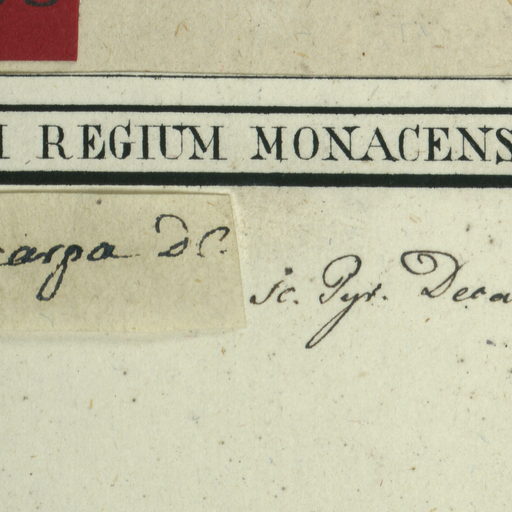 M REGIUM MONACENS
carpa DC.
Sc. Pyr. Deca